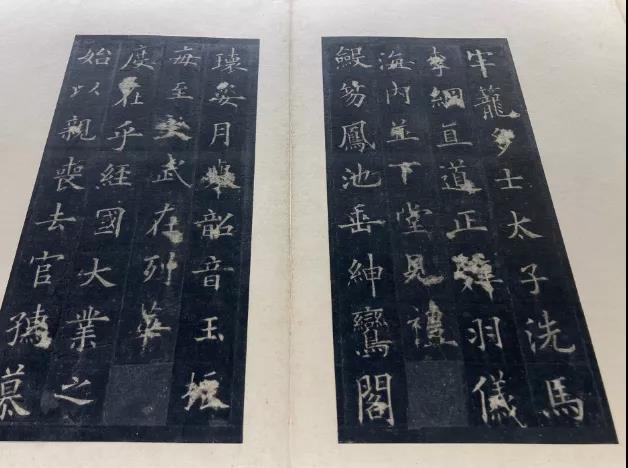 牢籠多士太子洗馬
李綱直道正辭羽儀
海内並下堂見禮
笏鳳池垂紳鸞閣
瓌姿月韶音玉振
每至文武在列華
度在乎經國大業之
始以親喪去官孺慕